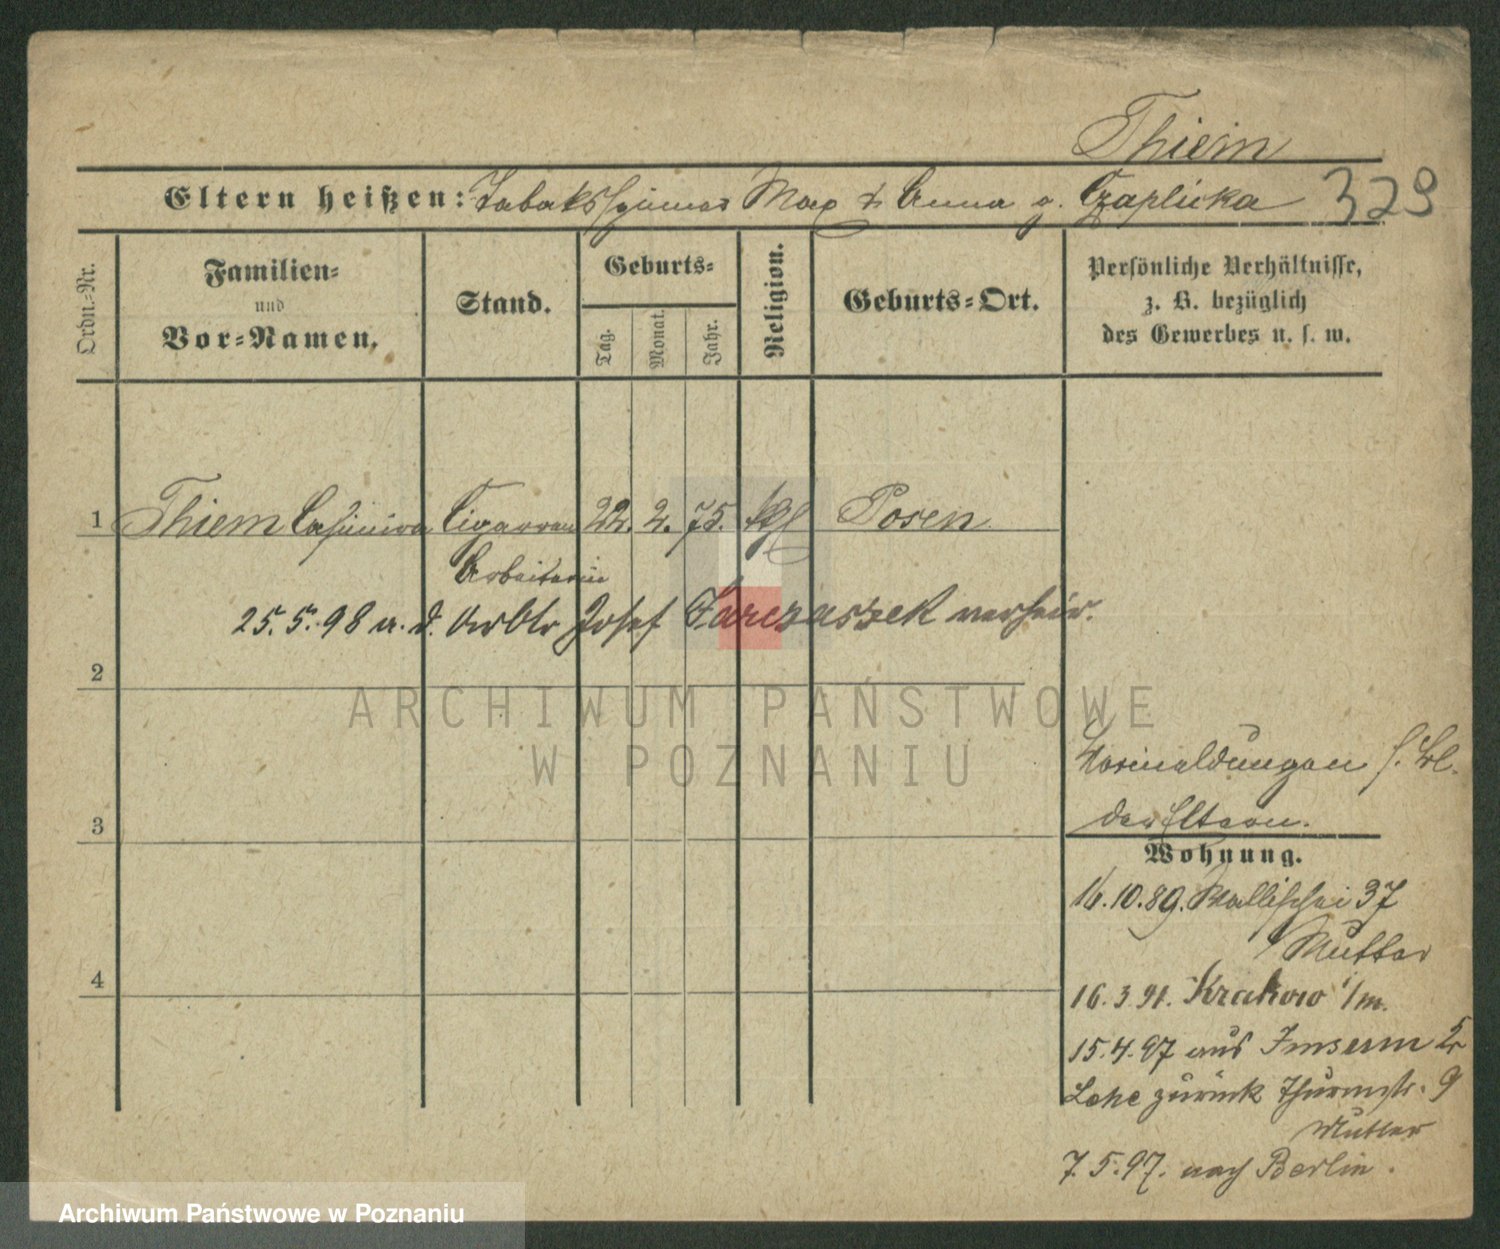 Thiem
Eltern heißen: Tabaksspinner Max & Anna g. Czaplicka 329
Ordn.-Nr.
Familien-
und
Vor-Namen.
Stand.
Geburts-
Tag.
Monat.
Jahr.
Religion.
Geburts-Ort.
Persönliche Verhältnisse,
z. B. bezüglich
des Gewerbes u. s. w.
1 Thiem Casimira Cigarren 22. 2. 75. kth Posen
Arbeiterin
25.5.98 a. d. Arbtr Josef Tarczaszek verheir.
2
ARCHIWUM PAŃSTWOWE
W POZNANIU
Vormeldungen s. Bl.
der Eltern.
3
Wohnung.
16.10.89. Wallischei 37
Mutter
4
16.3.91. Krakow i/m.
15.4.97 aus
zurück Thurmstr. 9
Mutter
7.5.97. nach Berlin.
Archiwum Państwowe w Poznaniu